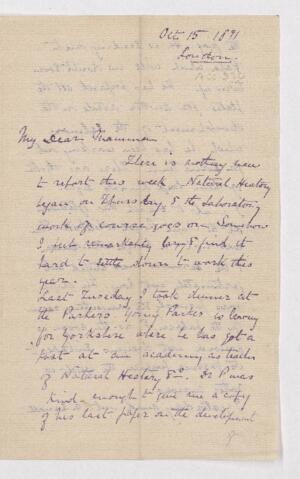 Oct 15 1891
London.
My Dear Mamma
There is nothing new
to report this week Natural History
began on Thursday & the laboratory
work of course goes on Somehow
I feel remarkably lazy & find it
hard to settle down to work this
year.
Last Tuesday I took dinner at
the Parkers. Young Parker is leaving
for Yorkshire where he has got a
post at an academy as teacher
of Natural History &c. Dr P was
kind enough to give me a copy
of his last paper on the development